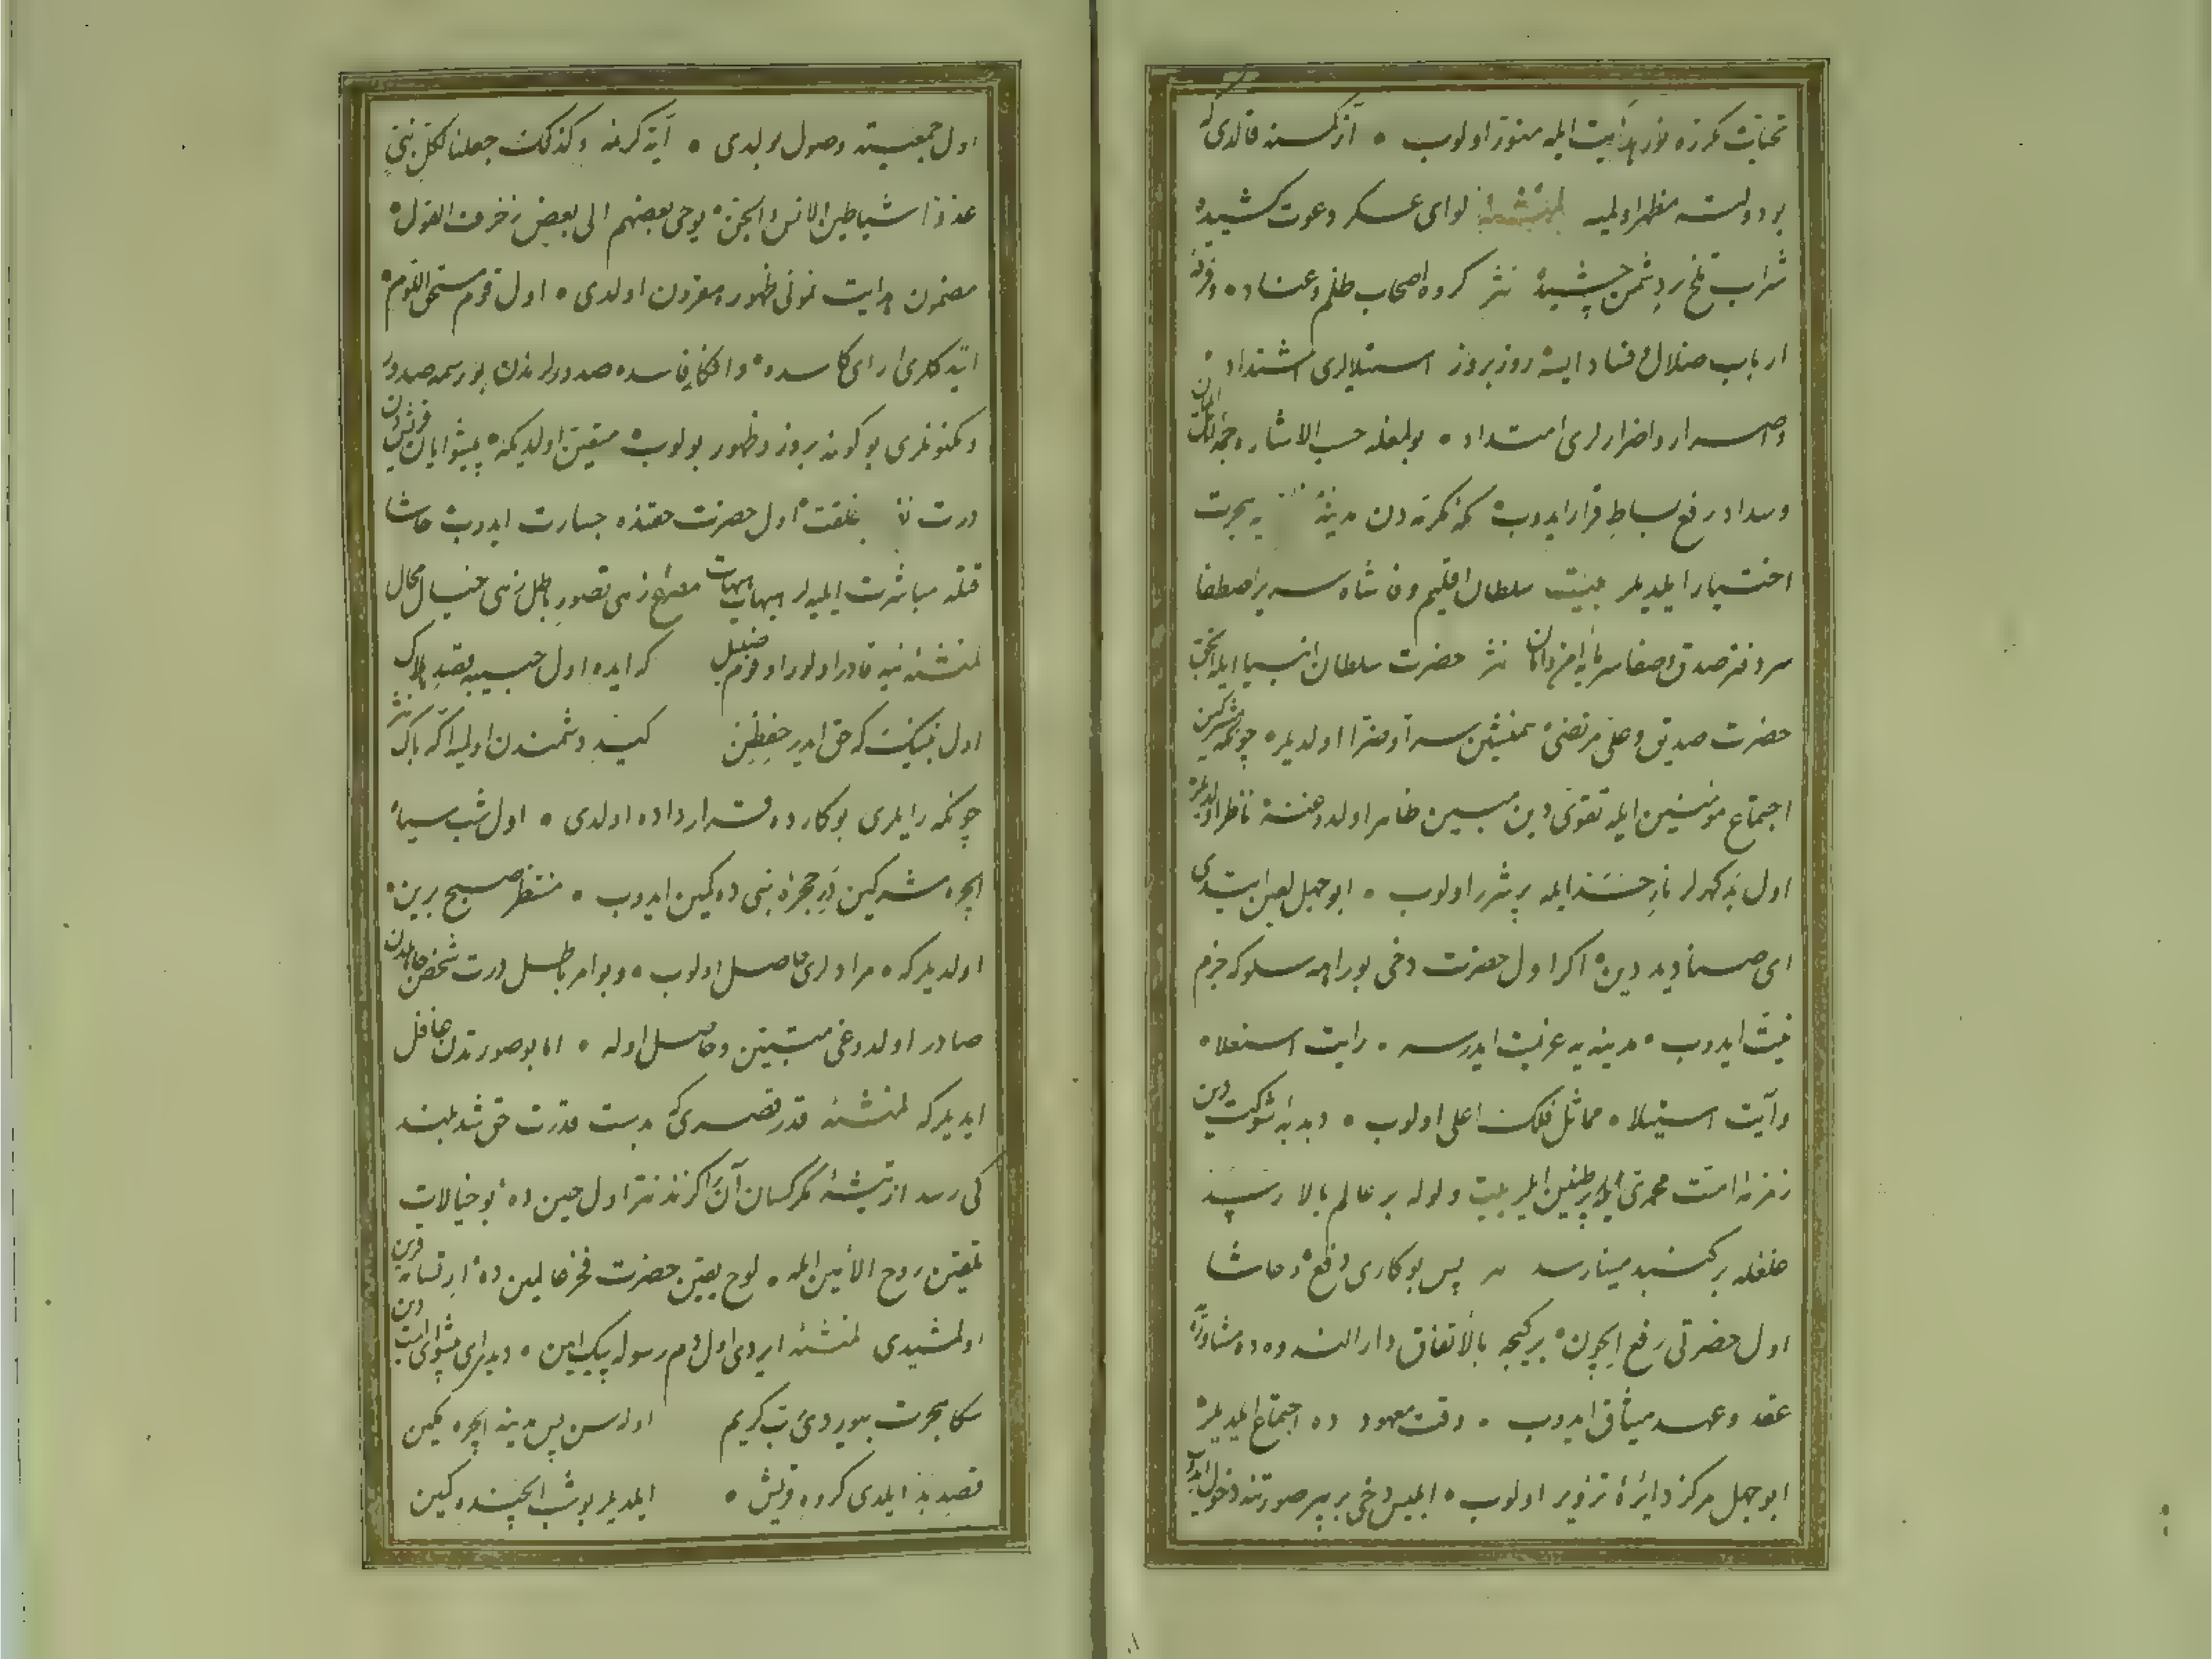 تحیات مکرزه نور هدایت ایله منور اولوب • آز کمسنه قالدی که
بو دولته مظهر اولمیه لمنشئه لوای عسکر دعوت کشیده
شراب تلخ رد دشمن چشیده نثر کروه اصحاب ظلم و عناد • و فرقهٔ
ارباب ضلال و فساد ایسه روز بروز استیلالری اشتداد •
و اصرار و اضرارلری امتداد • بولمغله حسب الاشاره
وسداد رفع بساط قرار ایدوب مکهٔ مکرمه دن مدینهٔ یه هجرت
اختیار ایلدیلر بیت سلطان اقلیم وفا شاه سریر اصطفا
سر دفتر صدق و صفا سرمایهٔ امن و امان نثر حضرت سلطان انبیا ایله انجق
حضرت صدیق و علی مرتضی همنشین سرا و ضرا اولدیلر چونکه مشرکین
اجتماع مؤمنین ایله تقوی دین مبین ظاهر اولدوغنه ناظر اولدیلر
اول نه کهرلر نار حسد ایله پر شرر اولوب • ابو جهل لعین ایتدی
ای صنادید دین اکر اول حضرت دخی بو راهه سلوکه جزم
نیت ایدوب • مدینه یه عزیمت ایدرسه • رایت استعلا •
و آیت استیلا • مماثل فلک اعلی اولوب • دبدبهٔ شوکت دین
زمزمهٔ امت محمدی ایله پر طنین ایلر بیت ولوله بر عالم بالا رسید
غلغله بر کنبد مینا رسد پس بو کاری دفع و حاشا
اول حضرتی رفع ایچون بر کیجه بالاتفاق دار الندوه ده مشاورهٔ
عقد و عهد میثاق ایدوب • وقت معهود ده اجتماع ایلدیلر
ابو جهل مرکز دائرهٔ تزویر اولوب • ابلیس دخی بر پیر صورتنه دخول ایدوب
اول جمعیته وصول بولدی • آیهٔ کریمهٔ وکذلک جعلنا لکل نبی
عدوا شیاطین الانس والجن یوحی بعضهم الی بعض زخرف القول
مضمون هدایت نمونی ظهوره مقرون اولدی • اول قوم مستحق اللوم
ایتدکلری رای کاسده و افکار فاسده صدورلرندن بو رسمه صدور
و مکنونلری بو کونه بروز و ظهور بولوب متیقن اولدیکه پیشوایان قریشدن
درت بغلفت اول حضرت حقنده جسارت ایدوب حاشا
قتلنه مباشرت ایلیه لر هیهات هیهات مصرع زهی تصور باطل زهی خیال محال
لمنشئه نیه قادر اولور او قوم ضلیل که ایده اول حبیبه قصد هلاک
اول نبینک که حق ایدر حفظن کید دشمندن اولیه اکا باک نثر
چونکه رایلری بو کارده قرار داده اولدی • اول شب سیاه
ایچره مشرکین در حجرهٔ نبی ده کمین ایدوب • منتظر صبح برین
اولدیلر که • مرادلری حاصل اولوب • و بو امر باطل درت شخص جاهلدن
صادر اولدوغی متبین و حاصل اوله • اما بو صورتدن غافل
ایدیلر که لمنشئه قدر قصری که بدست قدرت حق شد بلند
کی رسد از تیشهٔ مکر کسان آنرا کزند نثر اول حین ده بو خیالات
تلقین روح الأمین ایله • لوح یقین حضرت فخر عالمین ده ارتسامه قرین
اولمشیدی لمنشئه ایردی اول دم رسوله پیک امین • دیدی ای پیشوای امت دین
سکا هجرت بیوردی رب کریم اوله سن پس مدینه ایچره مکین
قصد بد ایلدی کروه قریش • ایلدیلر بو شب ایچنده کمین